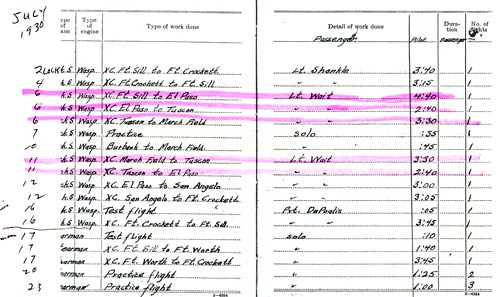 JULY
1930
Type of engine Type of work done Detail of work done Duration No. of flights
Passenger Pilot Passenger
2 LOCKH.S Wasp. XC. Ft. Sill to Ft. Crockett Lt. 3:40 1
4 h.S Wasp. XC. Ft. Crockett to Ft. Sill " " 3:15 1
6 h.S Wasp. XC. Ft. Sill to El Paso Lt. Wait 4:40 1
6 h.S Wasp. XC. El Paso to Tuscon " " 2:40 1
6 h.S Wasp. XC. Tuscon to March Field " " 3:30 1
7 h.S Wasp. Practice solo :55 1
10 h.S Wasp. Burbank to March Field. " :45 1
11 h.S Wasp. XC. March Field to Tuscon Lt. Wait 3:50 1
11 h.S Wasp. XC. Tuscon to El Paso " " 2:40 1
12 h.S Wasp. XC. El Paso to San Angelo " " 3:00 1
12 h.S Wasp. XC. San Angelo to Ft. Crockett " " 3:05 1
16 h.S Wasp. Test flight Pvt. :05 1
16 h.S Wasp. XC. Ft. Crockett to Ft. Sill " " 3:45 1
17 earman Test flight solo :10 1
17 earman XC. Ft. Sill to Ft. Worth " 1:40 1
17 earman XC. Ft. Worth to Ft. Crockett " 3:45 1
20 earman Practice flight " 1:25 2
23 earman Practice flight " 1:00 3